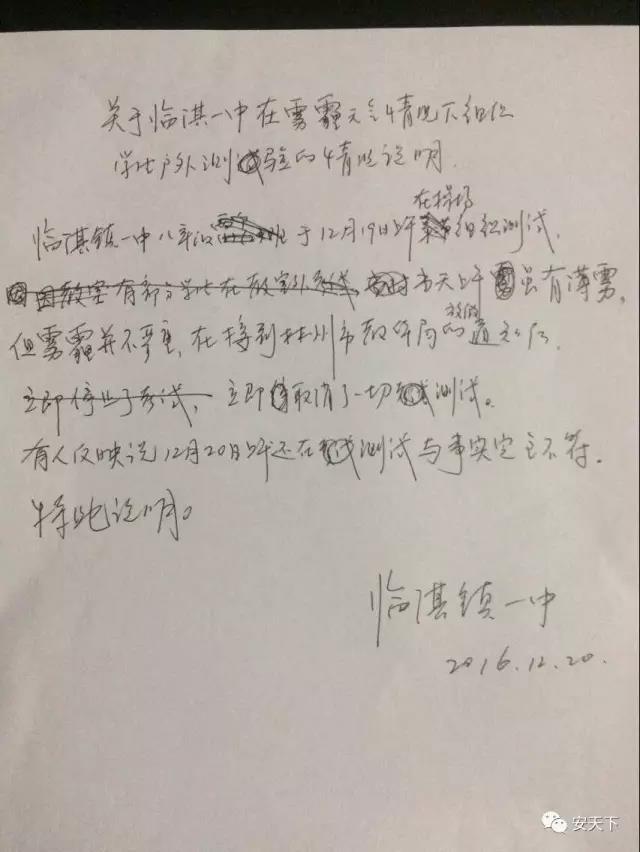 关于临淇一中在雾霾天气情况下组织
学生户外测验的情况说明
在操场
临淇镇一中八年级 于12月19日上午 组织测试,
因教室有部分学生在教室外考试, 当天上午 虽有薄雾,
放假
但雾霾并不严重,在接到林州市教体局的通知后,
立即停止了考试, 立即取消了一切 测试。
有人反映说12月20日上午还在 测试与事实完全不符.
特此说明。
临淇镇一中
2016.12.20.
安天下